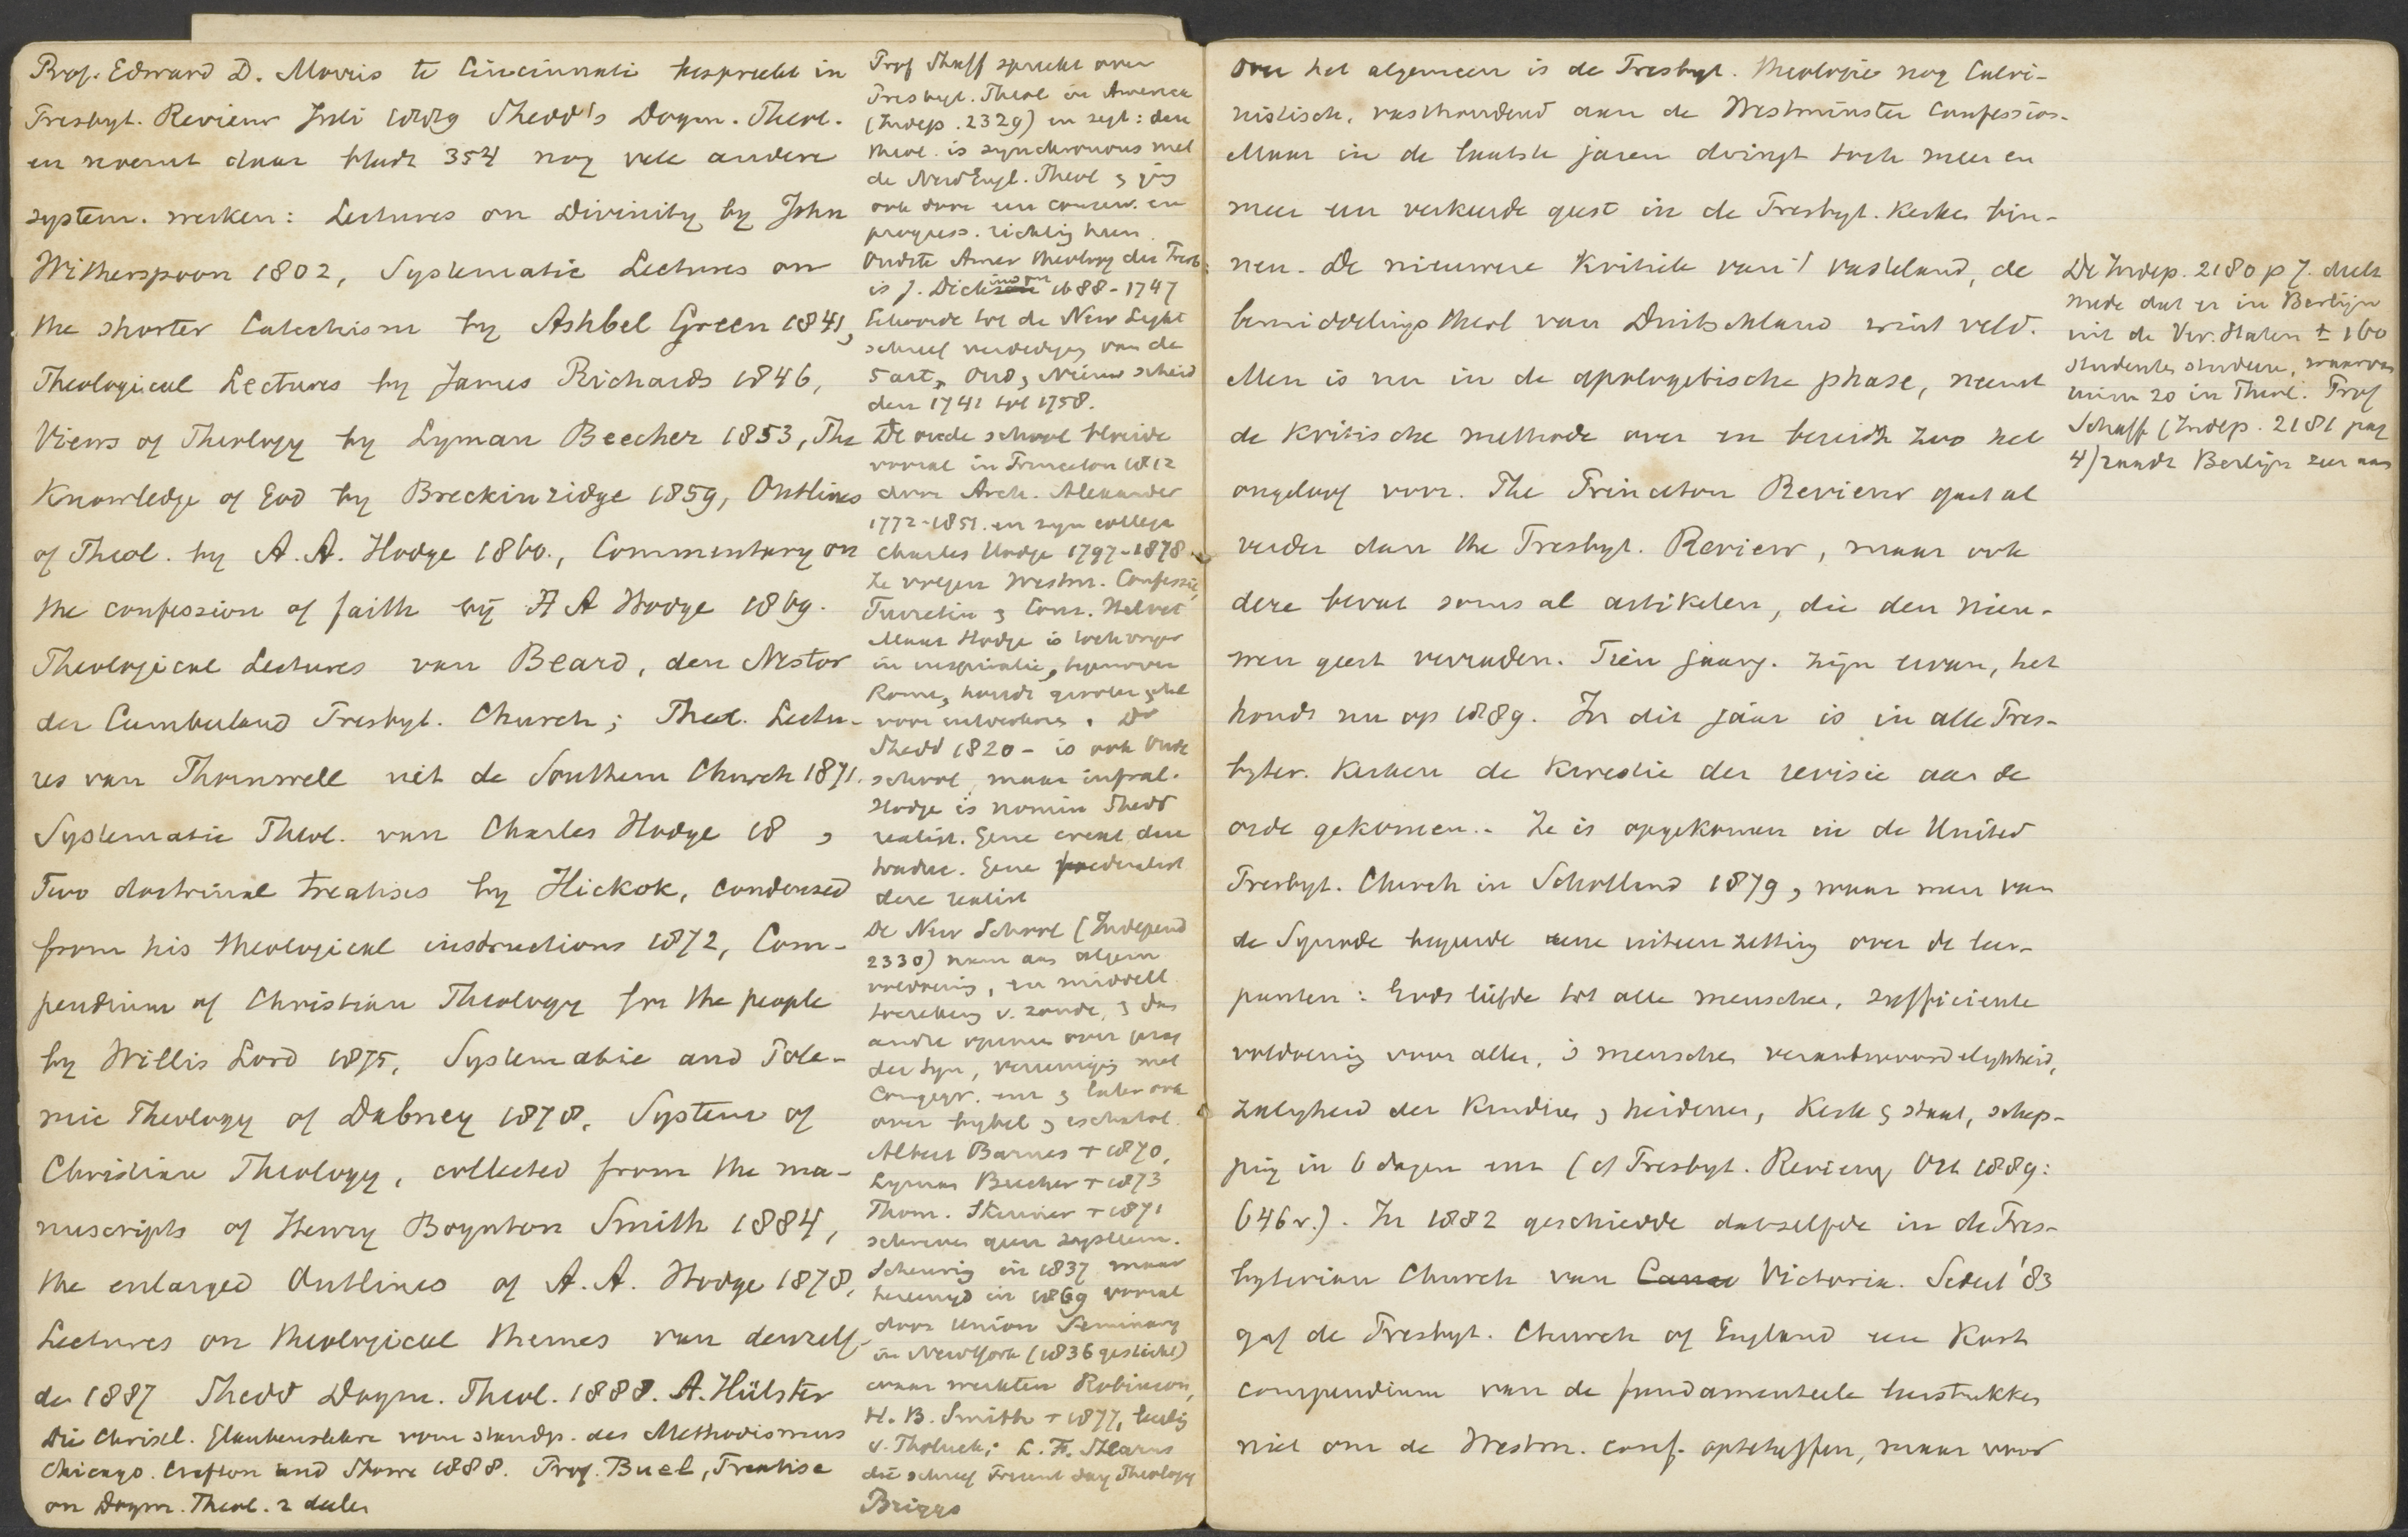 Prof. Edward D. Morris te Cincinnati bespreekt in
Presbyt. Review Juli 1889 Shedd's Dogm. Theol.
en noemt daar bladz 354 nog vele andere
system. werken: Lectures on Divinity by John
Witherspoon 1802, Systematic Lectures on
the shorter Catechism by Ashbel Green 1841,
Theological Lectures by James Richards 1846,
Views of Theology by Lyman Beecher 1853, The
Knowledge of God by Breckinridge 1859, Outlines
of Theol. by A. A. Hodge 1860., Commentary on
the confession of faith by A A Hodge 1869.
Theological Lectures van Beard, den Nestor
der Cumberland Presbyt. Church; Theol. Lectu-
res van Thornwell uit de Southern Church 1871.
Systematic Theol. van Charles Hodge 18 ,
Two doctrinal treatises by Hickok, condensed
from his theological instructions 1872, Com-
pendium of Christian Theology for the people
by Willis Lord 1875, Systematic and Pole-
mic Theology of Dabney 1878, System of
Christian Theology, collected from the ma-
nuscripts of Henry Boynton Smith 1884,
the enlarged Outlines of A. A. Hodge 1878,
Lectures on theological themes van denzelf-
den 1887 Shedd Dogm. Theol. 1888. A. Hülster
Die Christl. Glaubenslehre vom standp. des Methodismus
Chicago. Crafton und Stowe 1888. Prof. Buel, Treatise
on Dogm. Theol. 2 deelen
Prof Shaff spreekt over
Presbyt. Theol in America
(Indep. 2329) en zegt: deze
theol. is synchronous met
de NewEngl. Theol &
ook door een conserv. en
progress. richting heen.
Oudste Amer theoloog der Presb.
is J. Dickinson 1688-1747
behoorde tot de New Light
schreef verdediging van de
5 art., Oud & Nieuw scheid
den 1741 tot 1758.
De oude school bloeide
vooral in Princeton 1812
door Arch. Alexander
1772-1851. en zijn collega
Charles Hodge 1797-1878
Ze volgen Westm. Confessie,
Turretin & Cons. Helvet
Maar Hodge is toch vrijer
in inspiratie, tegenover
Rome, houdt grooter getal
voor uitverkoren. Dr
Shedd 1820- is ook Oude
school, maar infral.
Hodge is nomin Shedd
realist. Gene creat deze
traduc. Gene foederalist
deze realist
De New School (Independ
2330) nam aan algem
voldoening, en middell
toereken v. zonde, & dac
andre opinie over
der syn, vereeniging met
Congreg. enz & later ook
over bybel & eschatol.
Albert Barnes + 1870,
Lyman Beecher + 1873
Thom. Skinner + 1871
schreven geen systeem.
Scheuring in 1837 maar
hereenigd in 1869 vooral
door Union Seminary
in NewYork (1836 gesticht)
waar werkten Robinson,
H. B. Smith + 1877, leerling
v. Tholuck; L. F. Stearns
die schreef Present day Theology
Briggs
Over het algemeen is de Presbyt. theologie nog Calvi-
nistisch, vasthoudend aan de Westminster Confession.
Maar in de laatste jaren dringt toch meer en
meer een verkeerde geest in de Presbyt. Kerken bin-
nen. De nieuwere Kritiek van 't vasteland, de
bemiddelingstheol van Duitschland wint veld.
Men is nu in de apologetische phase, neemt
de kritische methode over en bereidt zoo het
ongeloof voor. The Princeton Review gaat al
verder dan the Presbyt. Review, maar ook
deze bevat soms al artikelen, die den nieu-
wen geest verraden. Tien jaarg. zijn ervan, het
houdt nu op 1889. In dit jaar is in alle Pres-
byter. Kerken de kwestie der revisie aan de
orde gekomen. - Ze is opgekomen in de United
Presbyt. Church in Schotland 1879, waar men van
de Synode begeerde eene uiteenzetting over de leer-
punten: Gods liefde tot alle menschen, sufficiente
voldoening voor allen, 's menschen verantwoordelijkheid,
zaligheid der kinderen & heidenen, Kerk & staat, schep-
ping in 6 dagen enz (cf Presbyt. Review Oct 1889:
646 v.). In 1882 geschiedde datzelfde in de Pres-
byterian Church van Victoria. Sedert '83
gaf de Presbyt. Church of England een Kort
compendium van de fundamenteele leerstukken
niet om de Westm. conf. opteheffen, maar voor
De Indep. 2180 p 7. deelt
mede dat er in Berlijn
uit de Ver. Staten ± 160
studenten studeeren, waarvan
ruim 20 in Theol. Prof
Schaff (Indep. 2181 pag
4) raadt Berlijn zeer aan